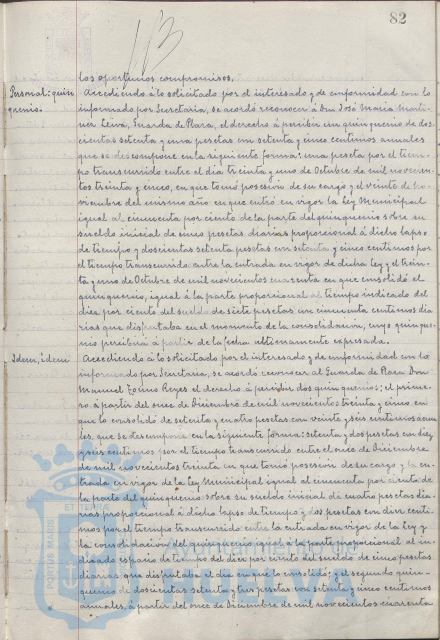 82
113
los oportunos compromisos.
Personal: quin
quenio.
Accediendo á lo solicitado por el interesado y de conformidad con lo
informado por Secretaria, se acordó reconocer á Don José María Marti-
nez Leiva, Guarda de Plaza, el derecho á percibir un quinquenio de dos-
cientas setenta y una pesetas con setenta y cinco centimos anuales
que se descompone en la siguiente forma: una peseta por el tiem-
po transcurrido entre el dia treinta y uno de Octubre de mil novecien-
tos treinta y cinco, en que tomó posesion de su cargo y el veinte de No-
viembre del mismo año en que entró en vigor la Ley Municipal
igual al cincuenta por ciento de la parte del quinquenio sobre su
sueldo inicial de cinco pesetas diarias proporcional á dicho lapso
de tiempo y doscientas setenta pesetas con setenta y cinco centimos por
el tiempo transcurrido entre la entrada en vigor de dicha ley y el trein-
ta y uno de Octubre de mil novecientos cuarenta en que consolidó el
quinquenio, igual á la parte proporcional al tiempo indicado del
diez por ciento del sueldo de siete pesetas con cincuenta centimos dia-
rias que disfrutaba en el momento de la consolidación, cuyo quinque-
nio percibirá á partir de la fecha ultimamente expresada.
Idem, idem
Accediendo á lo solicitado por el interesado y de conformidad con lo
informado por Secretaria, se acordó reconocer al Guarda de Plaza Don
Manuel Reyes el derecho á percibir dos quinquenios; el prime-
ro, á partir del once de Diciembre de mil novecientos treinta y cinco en
que lo consolidó de setenta y cuatro pesetas con veinte y seis centimos anua-
les, que se descompone en la siguiente forma: setenta y dos pesetas con diez
y seis centimos por el tiempo transcurrido entre el once de Diciembre
de mil novecientos treinta en que tomó posesion de su cargo y la en-
trada en vigor de la Ley Municipal igual al cincuenta por ciento de
la parte del quinquenio sobre su sueldo inicial de cuatro pesetas dia-
rias proporcional á dicho lapso de tiempo y dos pesetas con diez centi-
mos por el tiempo transcurrido entre la entrada en vigor de la Ley y
la consolidación del quinquenio igual á la parte proporcional al in-
dicado espacio de tiempo del diez por ciento del sueldo de cinco pesetas
diarias que disfrutaba el dia en que lo consolidó; y el segundo quin-
quenio de doscientas setenta y tres pesetas con setenta y cinco centimos
anuales, á partir del once de Diciembre de mil novecientos cuarenta
PORTUS MAGNIS
ET CETERIS